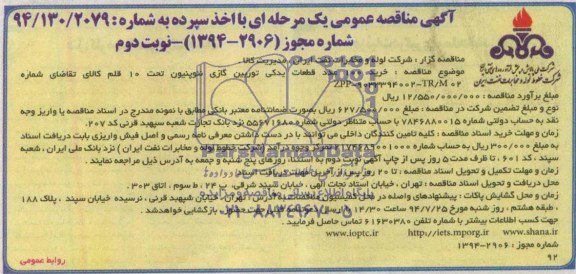 آگهی مناقصه عمومی یک مرحله ای با اخذ سپرده به شماره : ۹۴/۱۳۰/۲۰۷۹
شماره مجوز (۲۹۰۶-۱۳۹۴)-نوبت دوم
مناقصه گزار : شرکت لوله و مخابرات نفت ایران، مدیریت کالا
موضوع مناقصه : خرید عدد قطعات یدکی توربین گازی نئوپنیون تحت ۱۰ قلم کالای تقاضای شماره
مبلغ برآورد مناقصه : ۱۲/۵۵۰/۰۰۰/۰۰۰ ریال
نوع و مبلغ تضمین شرکت در مناقصه : مبلغ ۶۲۷/۵۰۰/۰۰۰ ریال بصورت ضمانتنامه معتبر بانکی مطابق با نمونه مندرج در اسناد مناقصه یا واریز وجه
نقد به حساب دولتی شماره با شناسه متناظر حساب دولتی شماره نزد بانک تجارت شعبه سپهبد قرنی کد ۲۰۷.
زمان و مهلت خرید اسناد مناقصه : کلیه تامین کنندگان داخلی می توانند با در دست داشتن معرفی نامه رسمی و اصل فیش واریزی بابت دریافت اسناد
به مبلغ ۳۰۰/۰۰۰ ریال به حساب شماره تمرکز وجوه درآمد (شرکت خطوط لوله و مخابرات نفت ایران ) نزد بانک ملی ایران ، شعبه
سپند ، کد ۶۰۱ ، تا ظرف مدت ۵ روز پس از چاپ آگهی نوبت دوم به استثناء روزهای پنج شنبه و جمعه به آدرس ذیل مراجعه نمایند.
زمان و مهلت تکمیل و تحویل اسناد مناقصه : تا ۲۰ روز پس از آخرین مهلت دریافت اسناد
محل دریافت و تحویل اسناد مناقصه : تهران ، خیابان استاد نجات الهی ، خیابان شهید شرقی، ، ط سوم ، اتاق ۳۰۳ .
زمان و محل گشایش پاکات : پیشنهادهای واصله در محل کمیسیون مناقصات به آدرس : تهران ، خیابان شهید قرنی ، نبش خیابان سپند ، پلاک ۱۸۸
، طبقه هشتم ، روز شنبه مورخ ۹۴/۷/۲۵ ساعت ۱۴/۳۰ بازگشایی خواهدشد .
جهت کسب اطلاعات بیشتر با شماره تلفن ۶۱۶۳۰۳۸۰ تماس حاصل فرمایید .
www.shana.ir http://iets.mporg.ir www.ioptc.ir
شماره مجوز : ۲۹۰۶-۱۳۹۴
۹۲
روابط عمومی